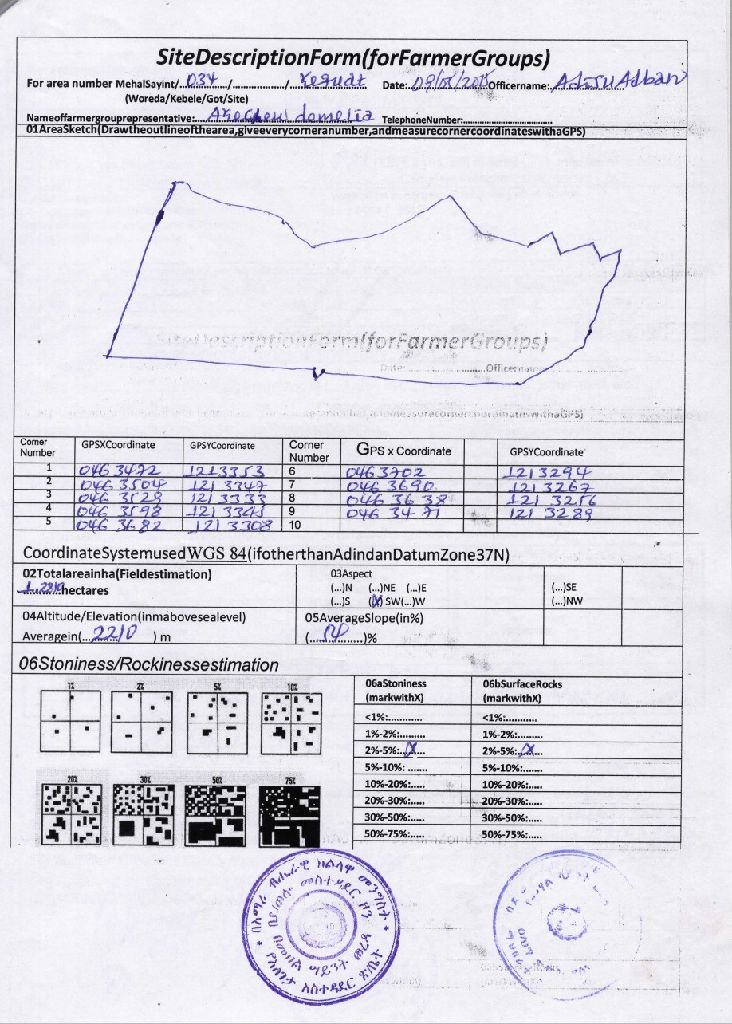 SiteDescriptionForm(forFarmerGroups)
For area number MehalSayint/..034../............../..Yegudt.. Date:..09/08/2005 Officername:..Adisu Adbaru
(Woreda/Kebele/Got/Site)
Nameoffarmergrouprepresentative:... TelephoneNumber:.............................
01AreaSketch(Drawtheoutlineofthearea,giveeverycorneranumber,andmeasurecornercoordinateswithaGPS)
Corner Number GPSXCoordinate GPSYCoordinate Corner Number GPS x Coordinate GPSYCoordinate
1 046 3472 1213353 6 0463702 121 3294
2 046 3504 121 3347 7 046 3690 121 3267
3 046 3529 121 3333 8 046 36 38 121 3256
4 046 3598 121 3345 9 046 34 71 121 3289
5 046 3682 121 3308 10
CoordinateSystemusedWGS 84(ifotherthanAdindanDatumZone37N)
02Totalareainha(Fieldestimation)
hectares
03Aspect
(...)N (...)NE (...)E (...)SE
(...)S (X) SW(...)W (...)NW
04Altitude/Elevation(inmabovesealevel)
Averagein(..2210..) m
05AverageSlope(in%)
(...............)%
06Stoniness/Rockinessestimation
1% 2% 5% 10%
20% 30% 50% 75%
06aStoniness 06bSurfaceRocks
(markwithX) (markwithX)
<1%:............ <1%:...........
1%-2%:......... 1%-2%:.........
2%-5%:..X... 2%-5%:..X...
5%-10%: ....... 5%-10%:.......
10%-20%:..... 10%-20%:.....
20%-30%:..... 20%-30%:.....
30%-50%:..... 30%-50%:.....
50%-75%:..... 50%-75%:.....